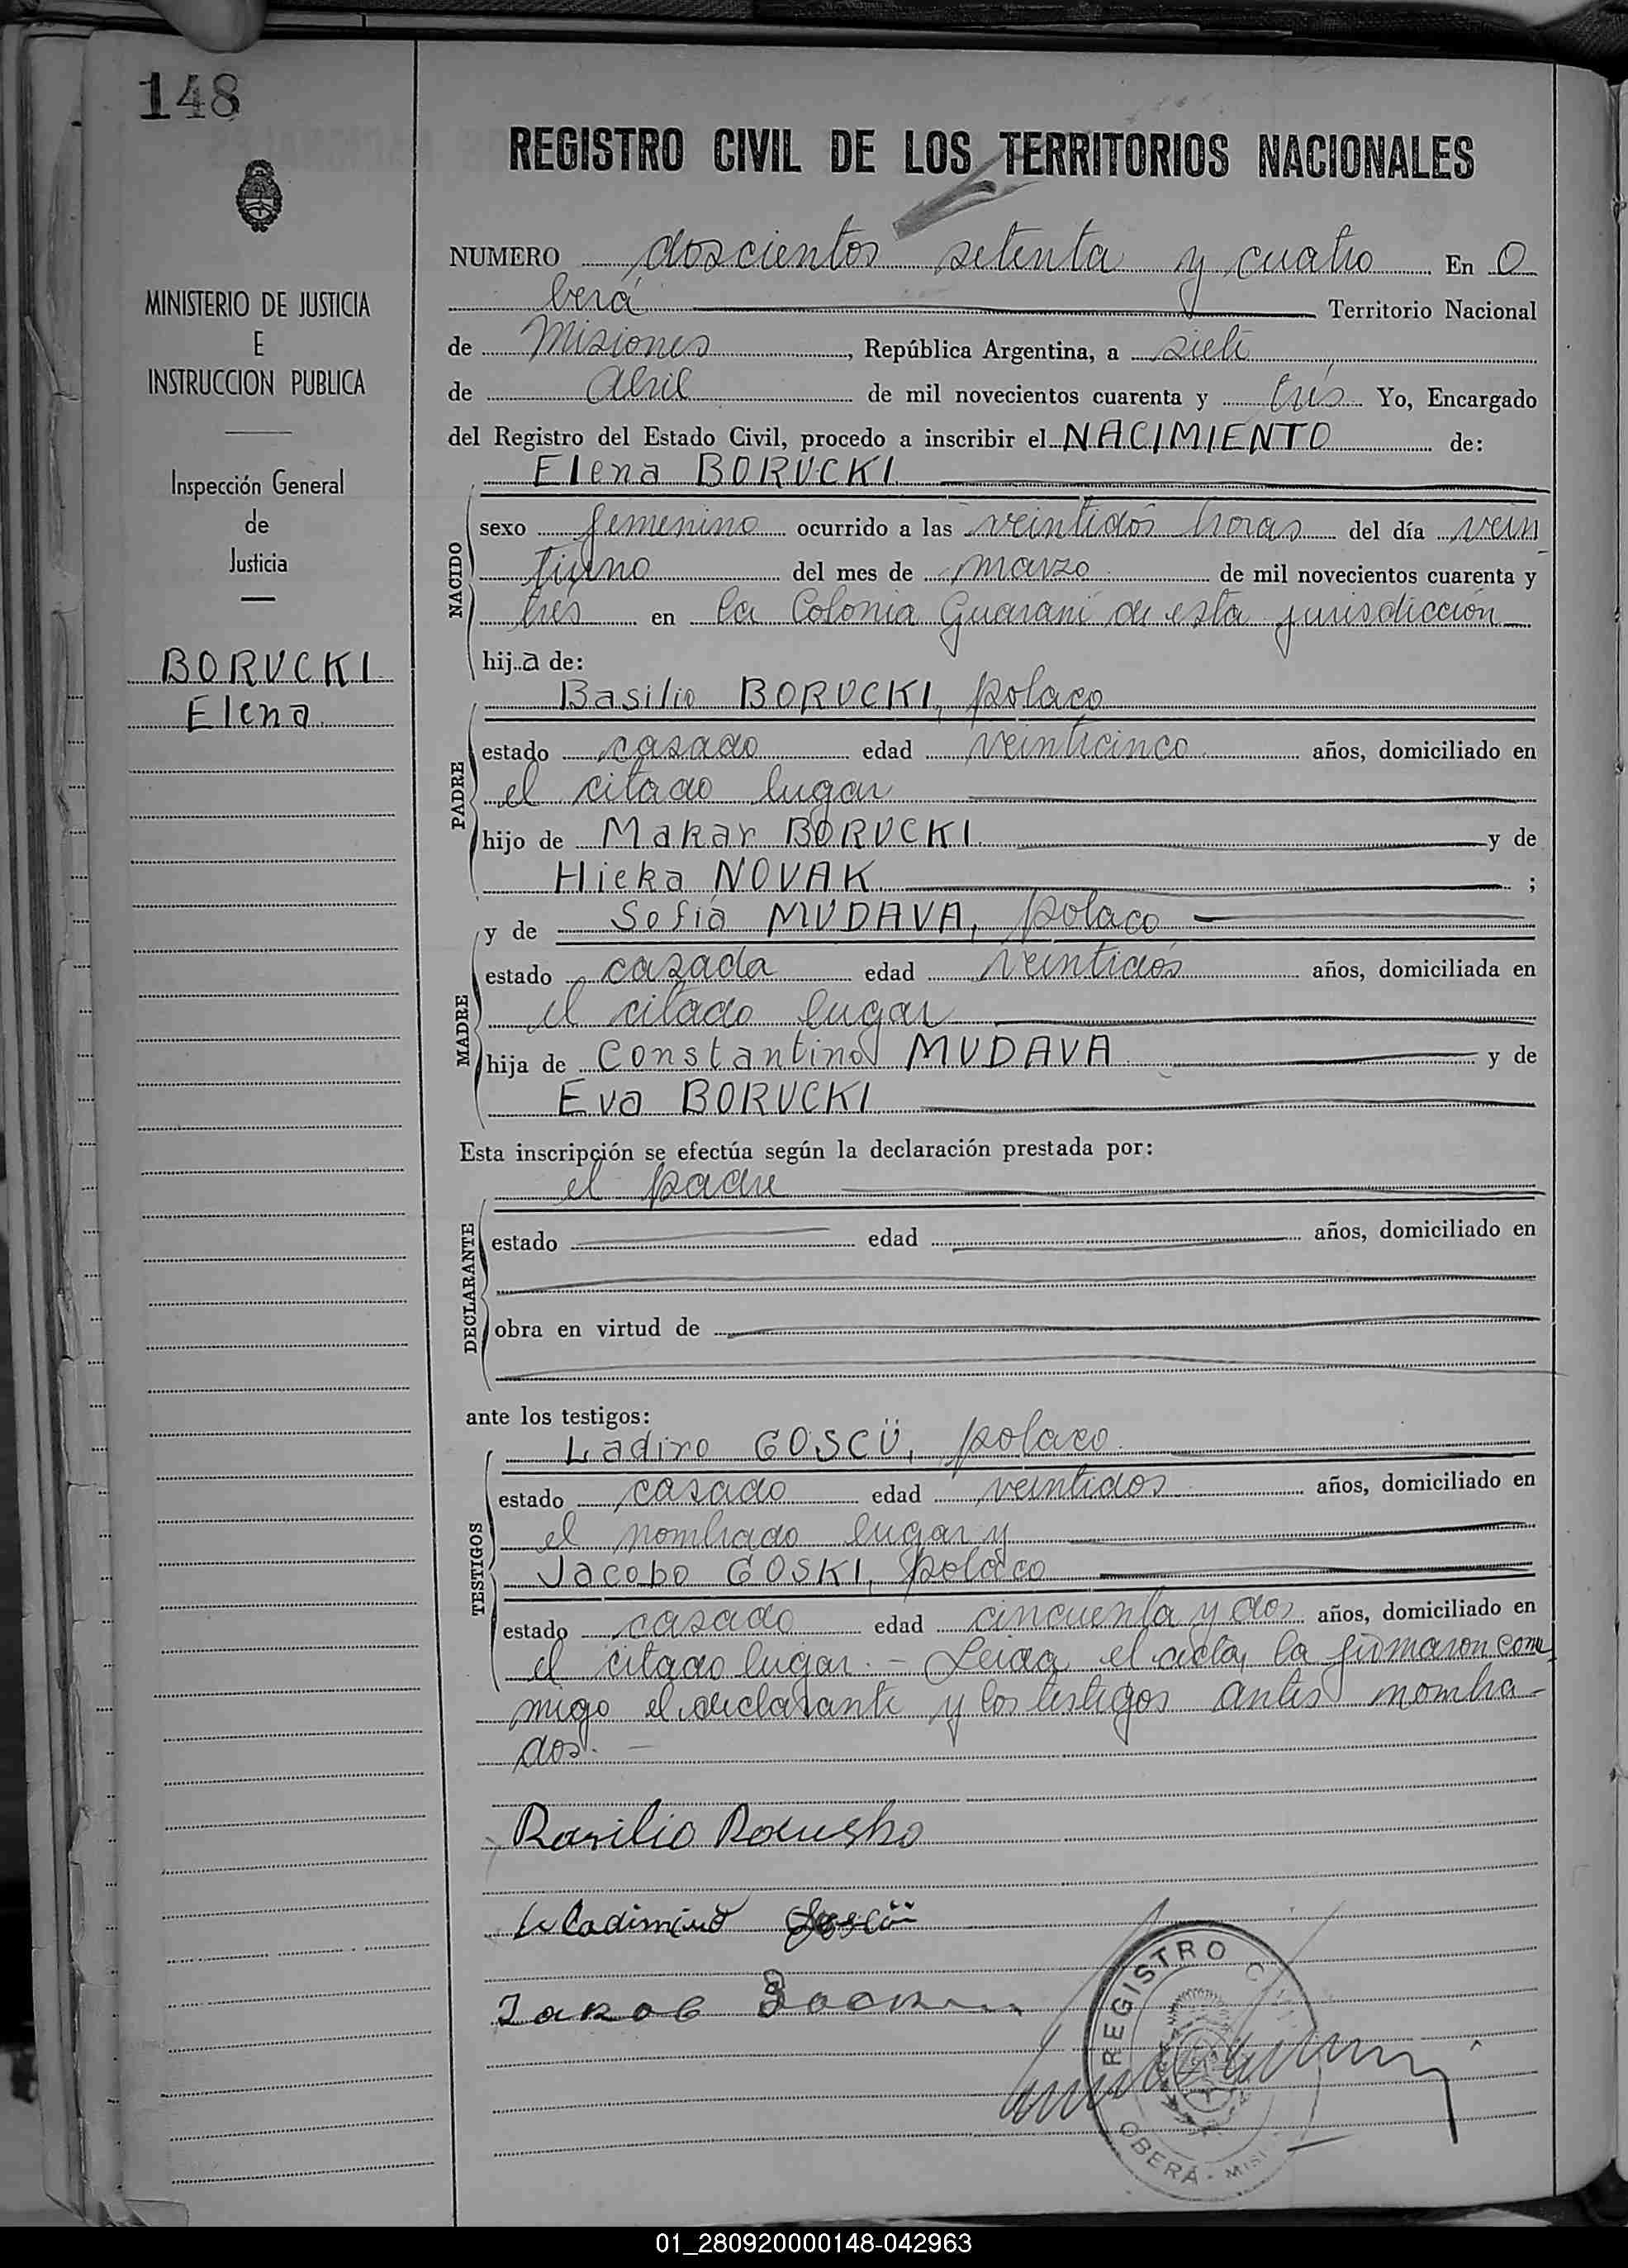 148
MINISTERIO DE JUSTICIA
E
INSTRUCCION PUBLICA
Inspección General
de
Justicia
BORUCKI
Elena
REGISTRO CIVIL DE LOS TERRITORIOS NACIONALES
NUMERO doscientos setenta y cuatro En O
berá Territorio Nacional
de Misiones, República Argentina, a siete
de Abril de mil novecientos cuarenta y tres Yo, Encargado
del Registro del Estado Civil, procedo a inscribir el NACIMIENTO de:
Elena BORUCKI
NACIDO
sexo femenino ocurrido a las veintidós horas del día vein
tiuno del mes de marzo de mil novecientos cuarenta y
tres en la Colonia Guaraní de esta jurisdicción
hija de:
Basilio BORUCKI, polaco
PADRE
estado casado edad veinticinco años, domiciliado en
el citado lugar
hijo de Makar BORUCKI y de
Hicka NOVAK ;
y de Sofía MUDAVA, polaco
MADRE
estado casada edad veintidós años, domiciliada en
el citado lugar
hija de Constantino MUDAVA y de
Eva BORUCKI
Esta inscripción se efectúa según la declaración prestada por:
el padre
DECLARANTE
estado edad años, domiciliado en
obra en virtud de
ante los testigos:
Ladiro GOSCÜ, polaco
TESTIGOS
estado casado edad veintidos años, domiciliado en
el nombrado lugar y
Jacobo GOSKI, polaco
estado casado edad cincuenta y dos años, domiciliado en
el citado lugar.- Leida el acta, la firmaron con
migo el declarante y los testigos antes nombra-
dos.-
REGISTRO C
OBERÁ - MISI
01_280920000148-042963